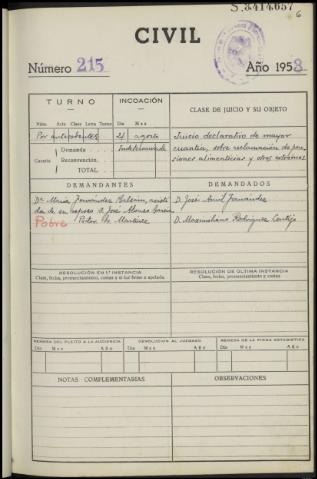 S.8414657
6
CIVIL
Número 215 Año 1953
TURNO INCOACIÓN CLASE DE JUICIO Y SU OBJETO
Núm. Acta Clase Letra Turno Día Mes
Por antecedentes 21 agosto Juicio declarativo de mayor
Cuantía Demanda Indeterminada cuantía, sobre reclamación de pen
Reconvención. siones alimenticias y otros extremos
TOTAL
DEMANDANTES DEMANDADOS
Dª María Fernández asisti D. José Fernández
da de su esposo D. José Alonso García D. Maximiliano Rodríguez
Pobre Martínez
RESOLUCIÓN EN 1ª INSTANCIA RESOLUCIÓN DE ÚLTIMA INSTANCIA
Clase, fecha, pronunciamiento, costas y si fué firme o apelada. Clase, fecha, pronunciamiento y costas
REMESA DEL PLEITO A LA AUDIENCIA DEVOLUCIÓN AL JUZGADO REMESA DE LA FICHA ESTADÍSTICA
Día Mes Año Día Mes Año Día Mes Año
NOTAS COMPLEMENTARIAS OBSERVACIONES